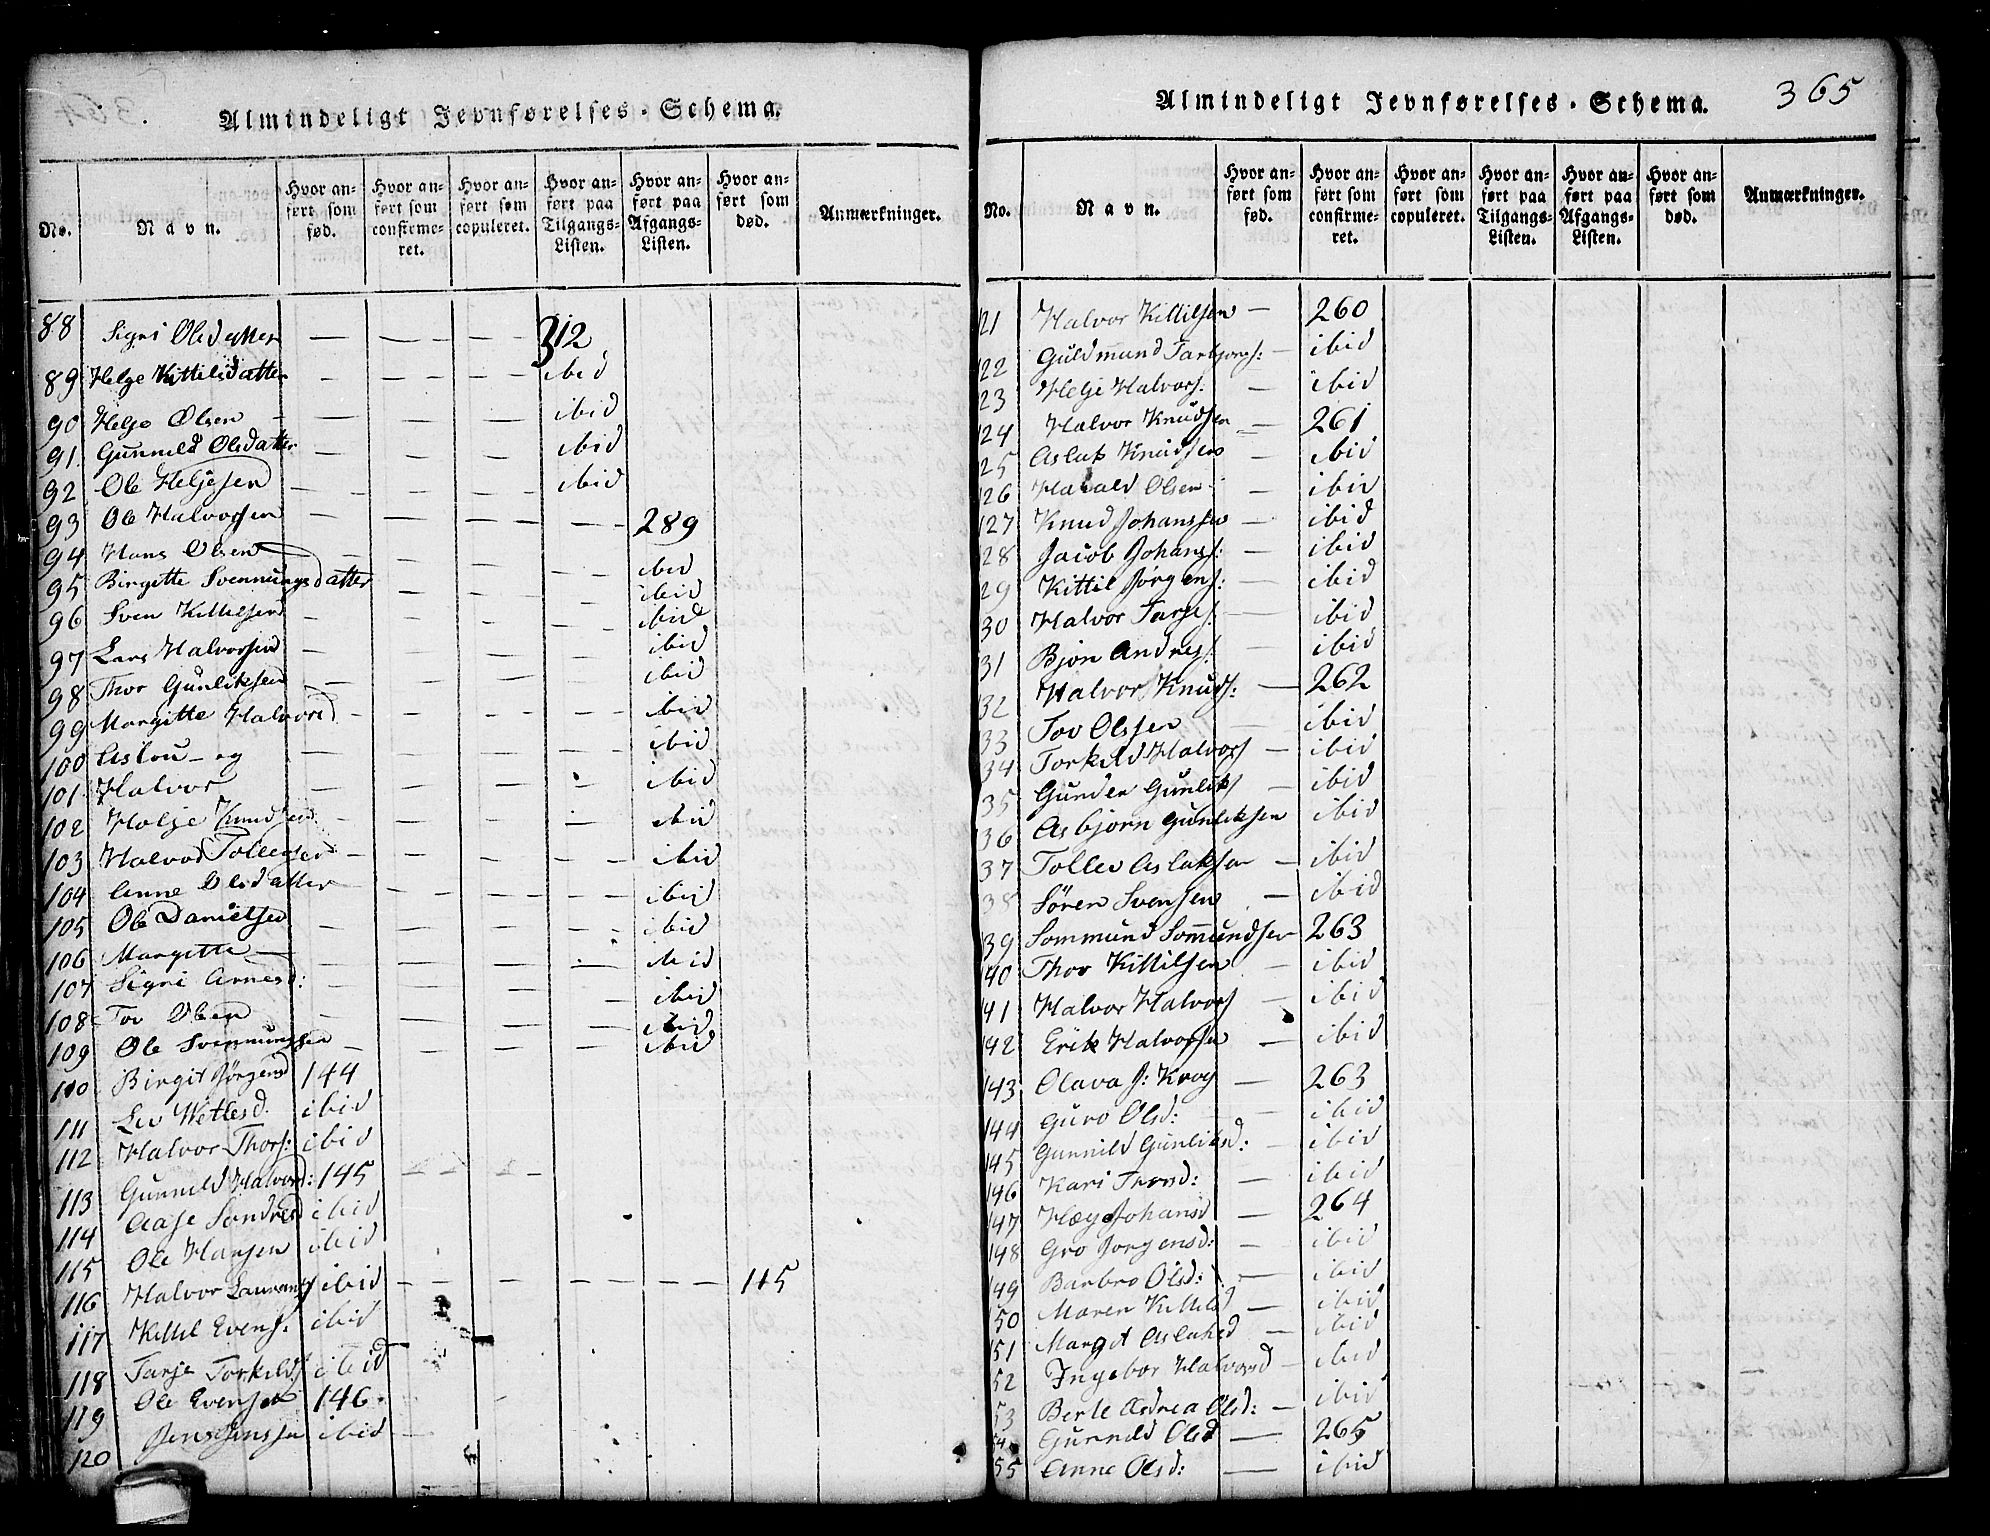 Almindeligt Jevnførelses-Schema.
No. | Navn. | Hvor anført som fød. | Hvor anført som confirmeret. | Hvor anført som copuleret. | Hvor anført paa Tilgangs-Listen. | Hvor anført paa Afgangs-Listen. | Hvor anført som død. | Anmærkninger.
88 Sigri Olsdatter — — — 312
89 Helge Kittilsdatter — — — ibid
90 Helje Olsen — — — ibid
91 Gunnild Olsdatter — — — ibid
92 Ole Heljesen — — — ibid
93 Ole Halvorsen — — — — 289
94 Hans Olsen — — — — ibid
95 Birgitte Svennungsdatter — — — ibid
96 Sven Kittilsen — — — — ibid
97 Lars Halvorsen — — — — ibid
98 Thor Gunliksen — — — — ibid
99 Margitte Halvorsd — — — — ibid
100 Aslou — og — — — — ibid
101 Halvor — — — — ibid
102 Holje Knudsen — — — — ibid
103 Halvor Tollefsen — — — — ibid
104 Anne Olsdatter — — — — ibid
105 Ole Danielsen — — — — ibid
106 Margitte — — — — ibid
107 Sigri Arnesd: — — — — ibid
108 Tov Olsen — — — — ibid
109 Ole Svennungsen — — — — ibid
110 Birgit Jørgensd 144
111 Liv Wetlesd. ibid
112 Halvor Thors: ibid
113 Gunnild Halvorsd: 145 — — —
114 Aase Sondresd ibid
115 Ole Hansen ibid
116 Halvor Laurants ibid — — — — — 115
117 Kittil Evens: ibid
118 Tarje Torkilds ibid
119 Ole Evensen 146
120 Jens Jenssen ibid —
Almindeligt Jevnførelses-Schema. 365
No. | Navn. | Hvor anført som fød. | Hvor anført som confirmeret. | Hvor anført som copuleret. | Hvor anført paa Tilgangs-Listen. | Hvor anført paa Afgangs-Listen. | Hvor anført som død. | Anmærkninger.
121 Halvor Kittilsen — 260
122 Guldmund Tarbjørns: — ibid
23 Helje Halvors: — ibid
124 Halvor Knudsen — 261
125 Aslak Knudsen — ibid
126 Harald Olsen — ibid
127 Knud Johanssen — ibid
128 Jacob Johans: — ibid
29 Kittil Jørgens: — ibid
30 Halvor Tarjes: — ibid
31 Bjøn Andres: ibid
32 Halvor Knuds: — 262
33 Tov Olssen — ibid
34 Torkild Halvors — ibid
35 Gunder Gunliks — ibid
36 Asbjørn Gunliksen ibid
37 Tollev Aslaksen — ibid
38 Søren Svensen — ibid
39 Sommund Sommundsen 263
40 Thor Kittilsen — ibid
141 Halvor Halvors — ibid
142 Erik Halvorsen — ibid
143 Olava J: Krog — 263
144 Guro Olsd: — ibid
145 Gunnild Gunliksd: — ibid
146 Kari Thorsd: — ibid
147 Hæge Johansd — 264
148 Gro Jørgensd: — ibid
149 Barbro Olsd: — ibid
50 Maren Kittilsd — ibid
51 Margit Aslaksd — ibid
52 Ingebor Halvorsd — ibid
53 Berte Andrea Olsd: — ibid
54 Gunnild Olsd — 265
55 Anne Olsd: — ibid